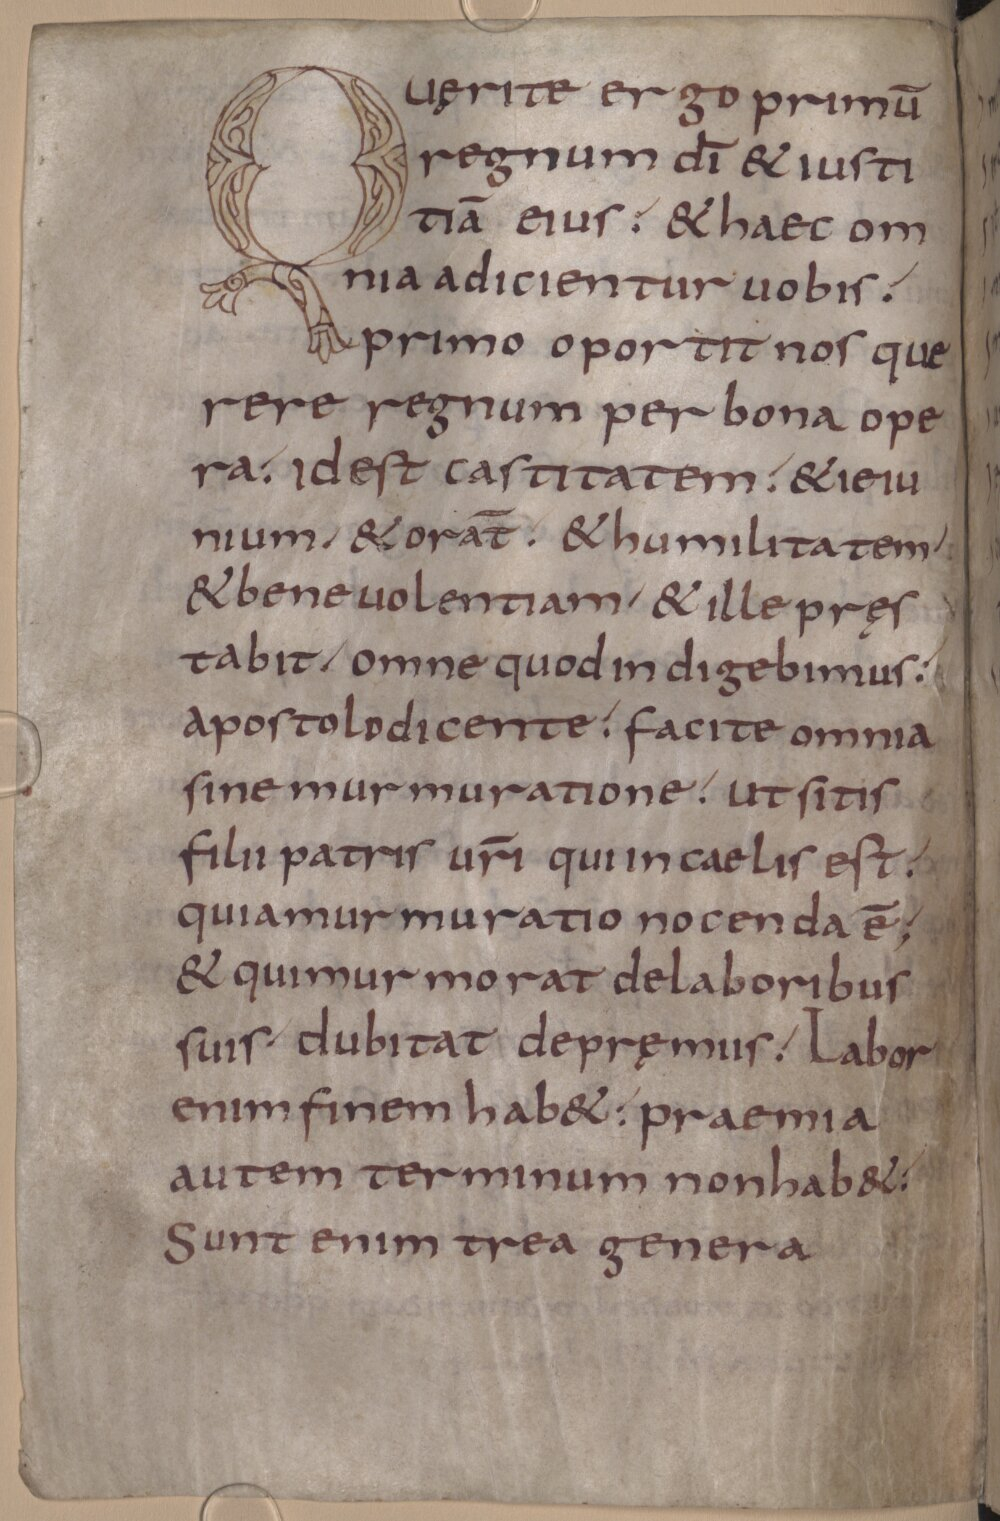 Quęrite ergo primū
regnum dī & iusti
tiā eius: & haec om
nia adicientur uobis:
primo oportit nos que
rere regnum per bona ope
ra: id est castitatem: & ieiu
nium, & orat̄. & humilitatem,
& beneuolentiam, & ille pręs
tabit, omne quod indigebimus:
apostolo dicente: facite omnia
sine murmuratione: ut sitis
filii patris ur̄i qui in caelis est:
quia murmuratio nocenda ē;
& qui murmorat de laboribus
suis, dubitat de pręmus: Labor
enim finem hab&: praemia
autem terminum non hab&:
Sunt enim trea genera